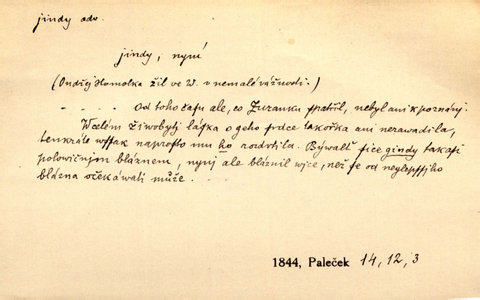 jindy adv.
jindy, nyní
(Ondřej Homolka žil ve W. v nemalé vážnosti.)
- . - . - . od toho času ale, co Zuzanku spatřil, nebyl ani k poznánj.
W celém žiwobytj láska o geho srdce takořka ani nezawadila,
tenkráte wssak naprosto mu ho rozdrtila. Býwalť sice gindy takasi
polowičnjm bláznem, nynj ale bláznil wjce, než se od neylepssjho
blázna očekáwati může.
1844, Paleček 14, 12, 3